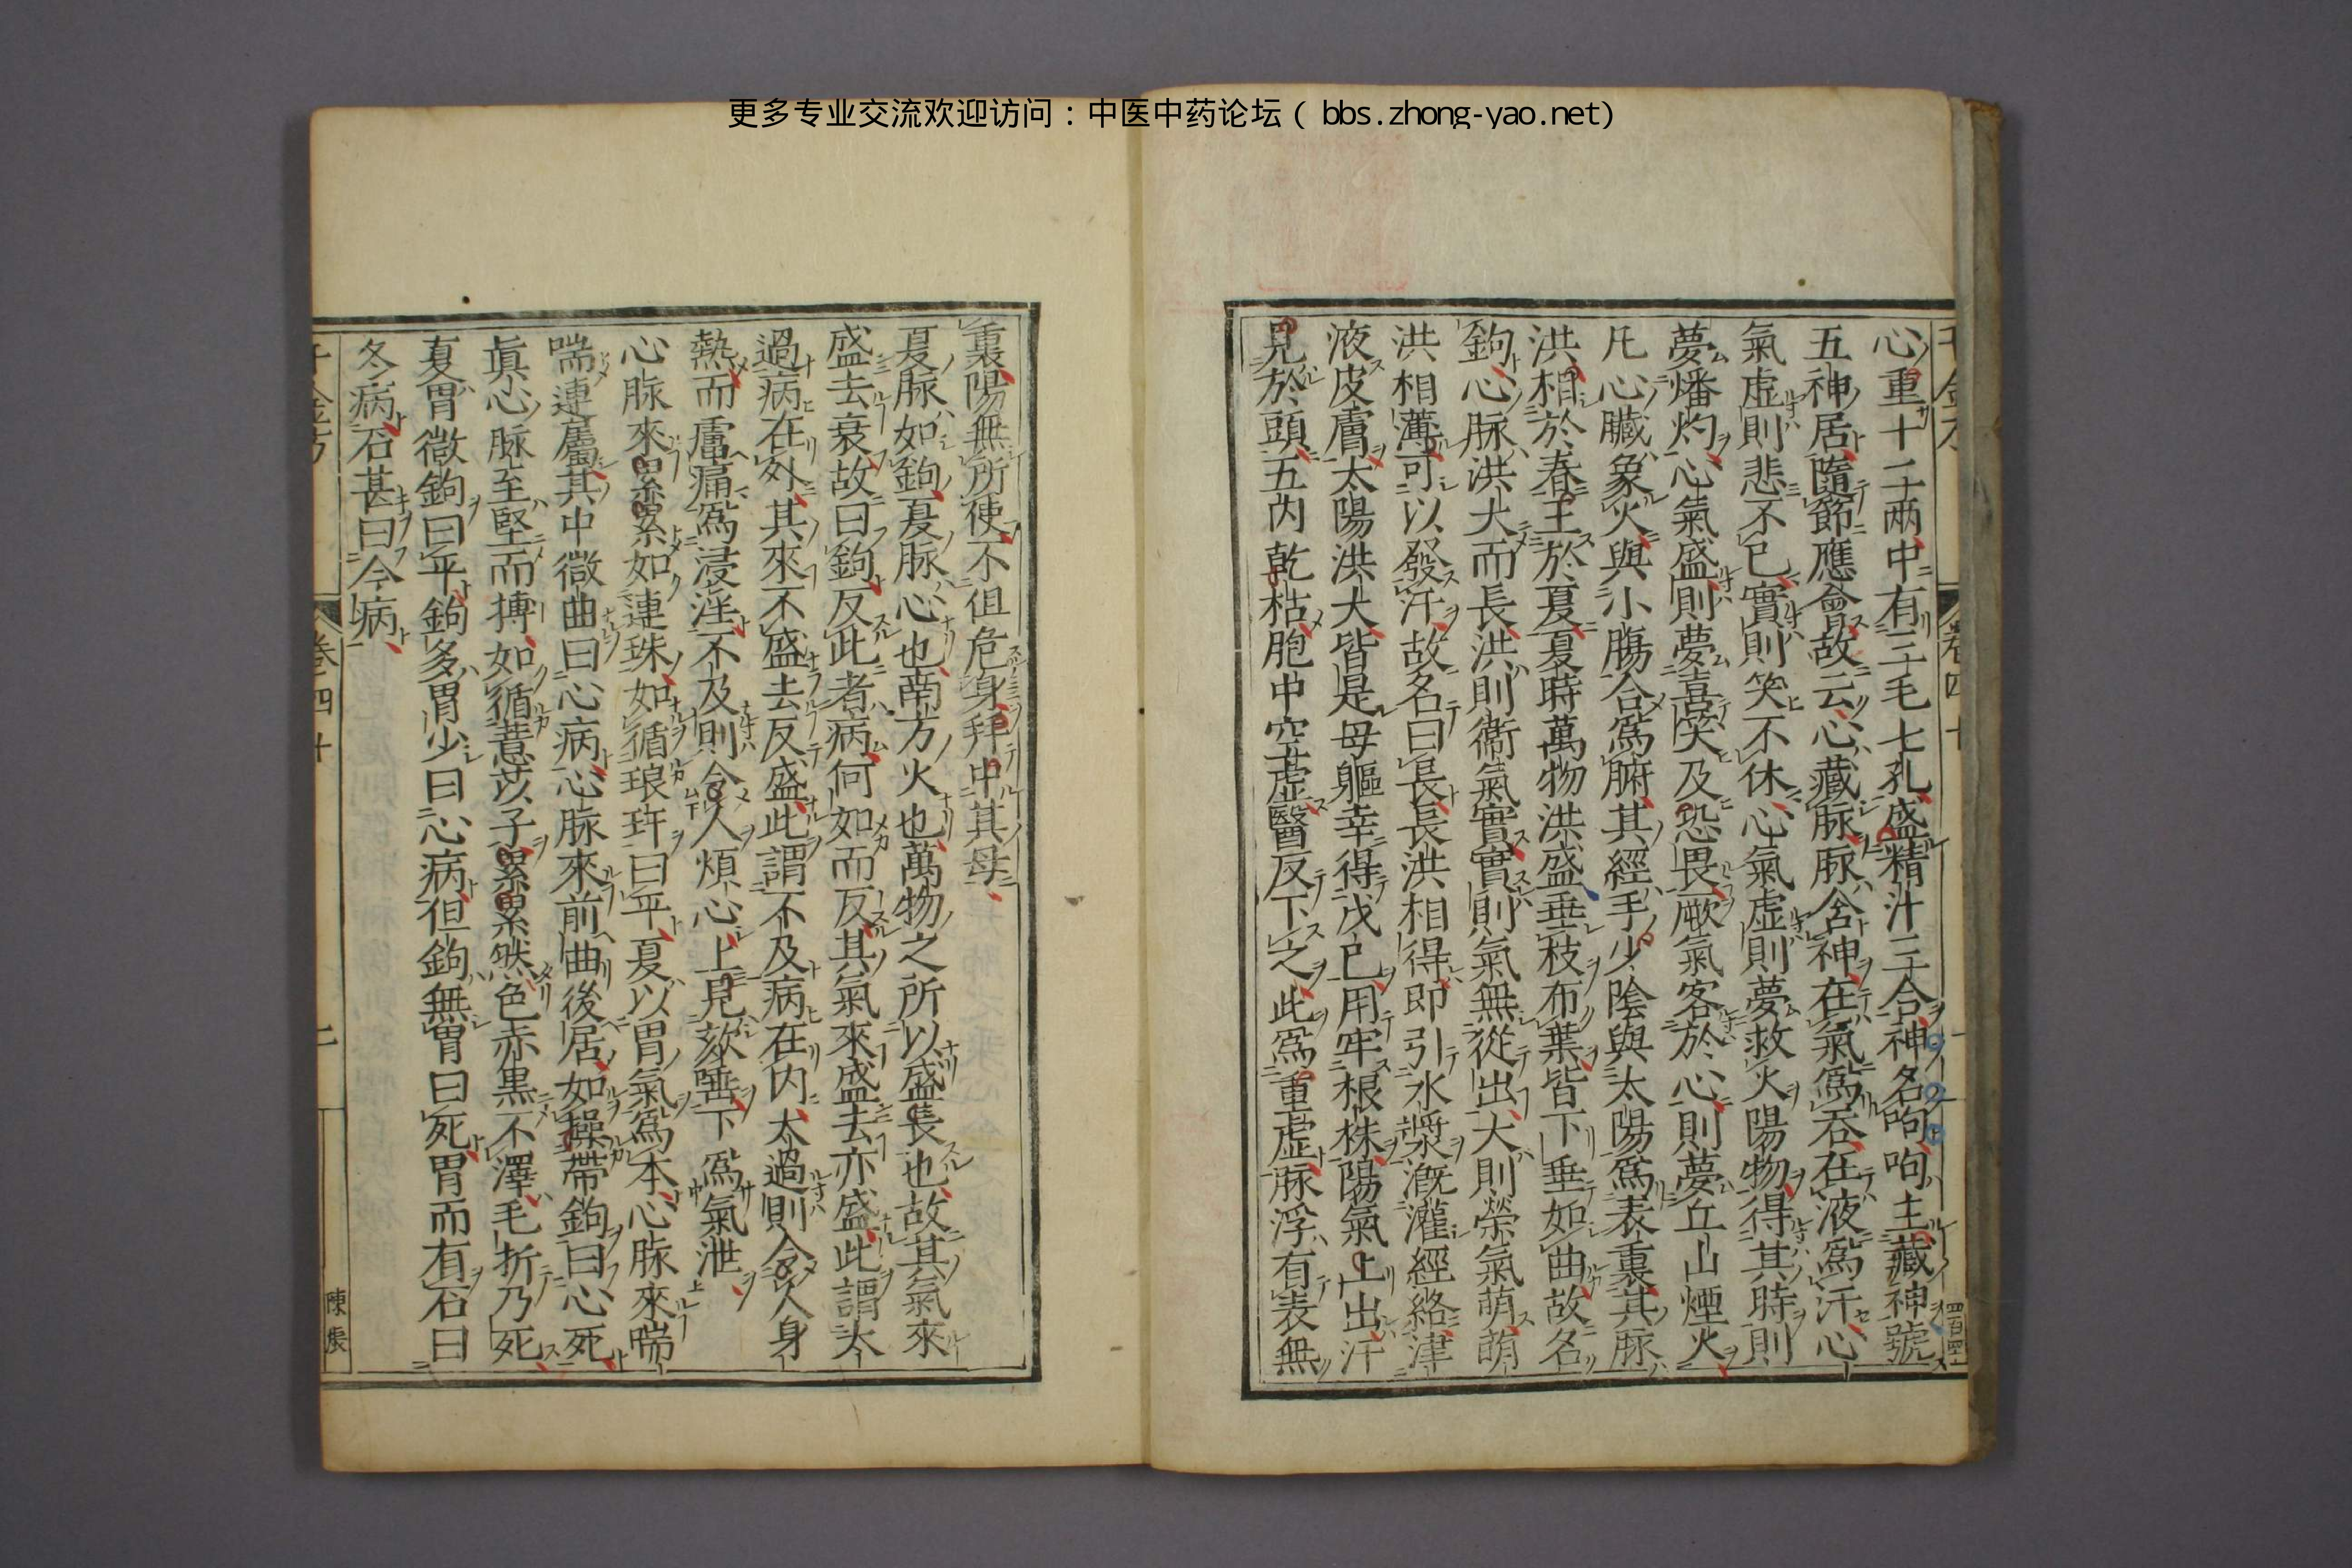 更多专业交流欢迎访问：中医中药论坛（bbs.zhong-yao.net）
心重十二兩中有三毛七孔盛精汁三合神名呴呴主藏神號
五神居隨節應會故云心藏脉脉舍神在氣爲吞在液爲汗心
氣虚則悲不已實則笑不休心氣虚則夢救火陽物得其時則
夢燔灼心氣盛則夢喜笑及恐畏厥氣客於心則夢丘山煙火
凡心臟象火與小腸合爲腑其經手少陰與太陽爲表裏其脉
洪相於春王於夏夏時萬物洪盛垂枝布葉皆下垂如曲故名
鉤心脉洪大而長洪則衞氣實實則氣無從出大則榮氣萌萌
洪相薄可以發汗故名曰長長洪相得即引水漿漑灌經絡津
液皮膚太陽洪大皆是母軀幸得戊已用牢根株陽氣上出汗
見於頭五内乾枯胞中空虚醫反下之此爲重虚脉浮有表無
裏陽無所使不但危身拜中其母
夏脉如鉤夏脉心也南方火也萬物之所以盛長也故其氣來
盛去衰故曰鉤反此者病何如而反其氣來盛去亦盛此謂太
過病在外其來不盛去反盛此謂不及病在内太過則令人身
熱而膚痛爲浸淫不及則令人煩心上見欬唾下爲氣泄
心脉來累累如連珠如循琅玕曰平夏以胃氣爲本心脉來喘
喘連屬其中微曲曰心病心脉來前曲後居如操帶鉤曰心死
眞心脉至堅而搏如循薏苡子累累然色赤黒不澤毛折乃死
夏胃微鉤曰平鉤多胃少曰心病但鉤無胃曰死胃而有石曰
冬病石甚曰今病
卷四十
陳